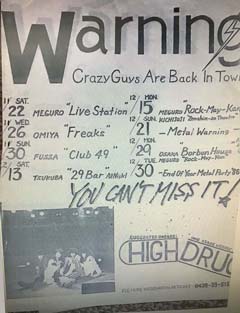 Warning
Crazy Guys Are Back In Tow
11 SAT. 22 MEGURO "Live Station"
11 WED. 26 OMIYA "Freaks"
11 SUN. 30 FUSSA "Club 49"
SAT. 13 TSUKUBA "29 Bar
12/ MON. 15 MEGURO "Rock-May-Kan
12/ SUN. 21
– Metal Warning
12/ MON 29 OSAKA Borbon House
12/ TUE. 30 MEGURO "Rock-May-Kan
– End Of Year Metal Party '86
YOU CAN'T MISS IT!
HIGH DRUG